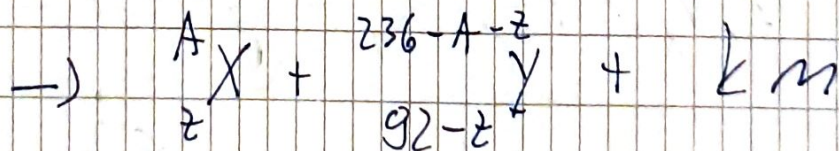 → ᴬ_z X + ²³⁶⁻ᴬ⁻ᶻ_92-z Y + k n